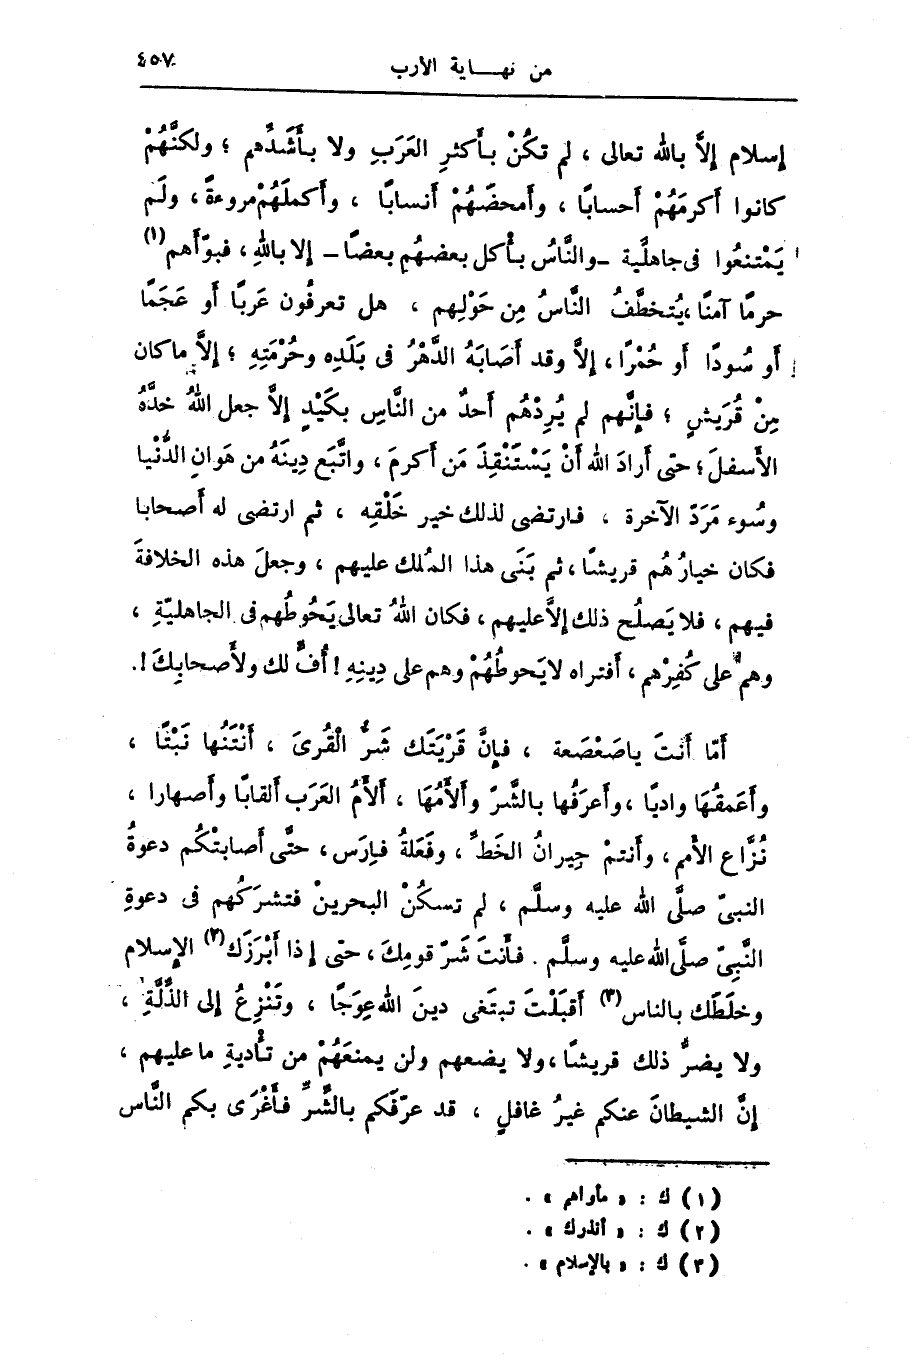 من نهـــاية الأرب ٤٥٧
إسلام إلَّا بالله تعالى ، لم تكُنْ بأكثرِ العَرَبِ ولا بأشَدِّهم ؛ ولكنَّهُمْ
كانوا أكرمَهُمْ أحسابًا ، وأمحضَهُمْ أنسابًا ، وأكملَهُمْ مروءةً ، ولَم
يَمْتنعُوا فى جاهلَّية – والنَّاسُ يأْكل بعضهُم بعضًا – إلا باللهِ ، فبوّأهم (١)
حرمًا آمنًا ، يُتخطَّفُ النَّاسُ مِن حَوْلِهم ، هل تعرفُون عَربًا أو عَجَمًا
أو سُودًا أو حُمْرًا ، إلاَّ وقد أصَابَهُ الدَّهْرُ فى بَلَدِه وحُرْمَتِهِ ؛ إلاَّ ما كان
مِنْ قُرَيشٍ ؛ فإنَّهم لم يُرِدْهُم أحدٌ من النَّاسِ بكَيْدٍ إلاَّ جعل اللهُ خدَّهُ
الأسفلَ ؛ حتى أرادَ الله أنْ يَسْتَنْقِذَ مَن أكرمَ ، واتَّبَع دِينَهُ من هَوانِ الدُّنْيا
وسُوء مَرَدّ الآخرة ، فارتضى لذلك خير خَلْقِه ، ثم ارتضى له أصحابا
فكان خيارُهُم قريشًا ، ثم بَنَى هذا المُلك عليهم ، وجعلَ هذه الخلافةَ
فيهم ، فلا يَصلُح ذلك إلاَّ عليهم ، فكان اللهُ تعالى يَحُوطُهم فى الجاهليّةِ ،
وهم على كُفرِهم ، أفتراه لا يَحوطُهُمْ وهم على دِينِهِ ! أُفٍّ لك ولأَصحابِكَ !.
أمّا أنتَ ياصَعْصَعة ، فإنَّ قَرْيَتَك شَرُّ الْقُرىَ ، أنْتَنُها نَبْتًا ،
وأعَمقُهَا واديًا ، وأعرَفُها بالشَّرّ وألأَمُهَا ، ألأمُ العَرَب ألقابًا وأصهارا ،
نُزَّاع الأمم ، وأنتمْ جِيرانُ الخَطِّ ، وفَعَلةُ فارَس ، حتَّى أصابتْكُم دعوةُ
النبىّ صلَّى الله عليه وسلَّم ، لم تسكُنْ البحرينْ فتشرَكُهم فى دعوةِ
النَّبِىّ صلَّى الله عليه وسلَّم . فأنتَ شَرّ قومِكَ ، حتى إذا أبْرَزَك (٢) الإسلام
وخلَطَك بالناس (٣) أقبَلْتَ تبتغى دينَ الله عِوَجًا ، وتَنْزِعُ إلى الذِّلَّةِ ،
ولا يضرُّ ذلك قريشًا ، ولا يضعهم ولن يمنعَهُمْ من تأْديةِ ما عليهم ،
إنَّ الشيطانَ عنكم غيرُ غافلٍ ، قد عرّفَكم بالشَّرِّ فأَغْرَى بكم النَّاس
(١) ك : « مأواهم » .
(٢) ك : « أنذرك » .
(٣) ك : « بالإسلام » .